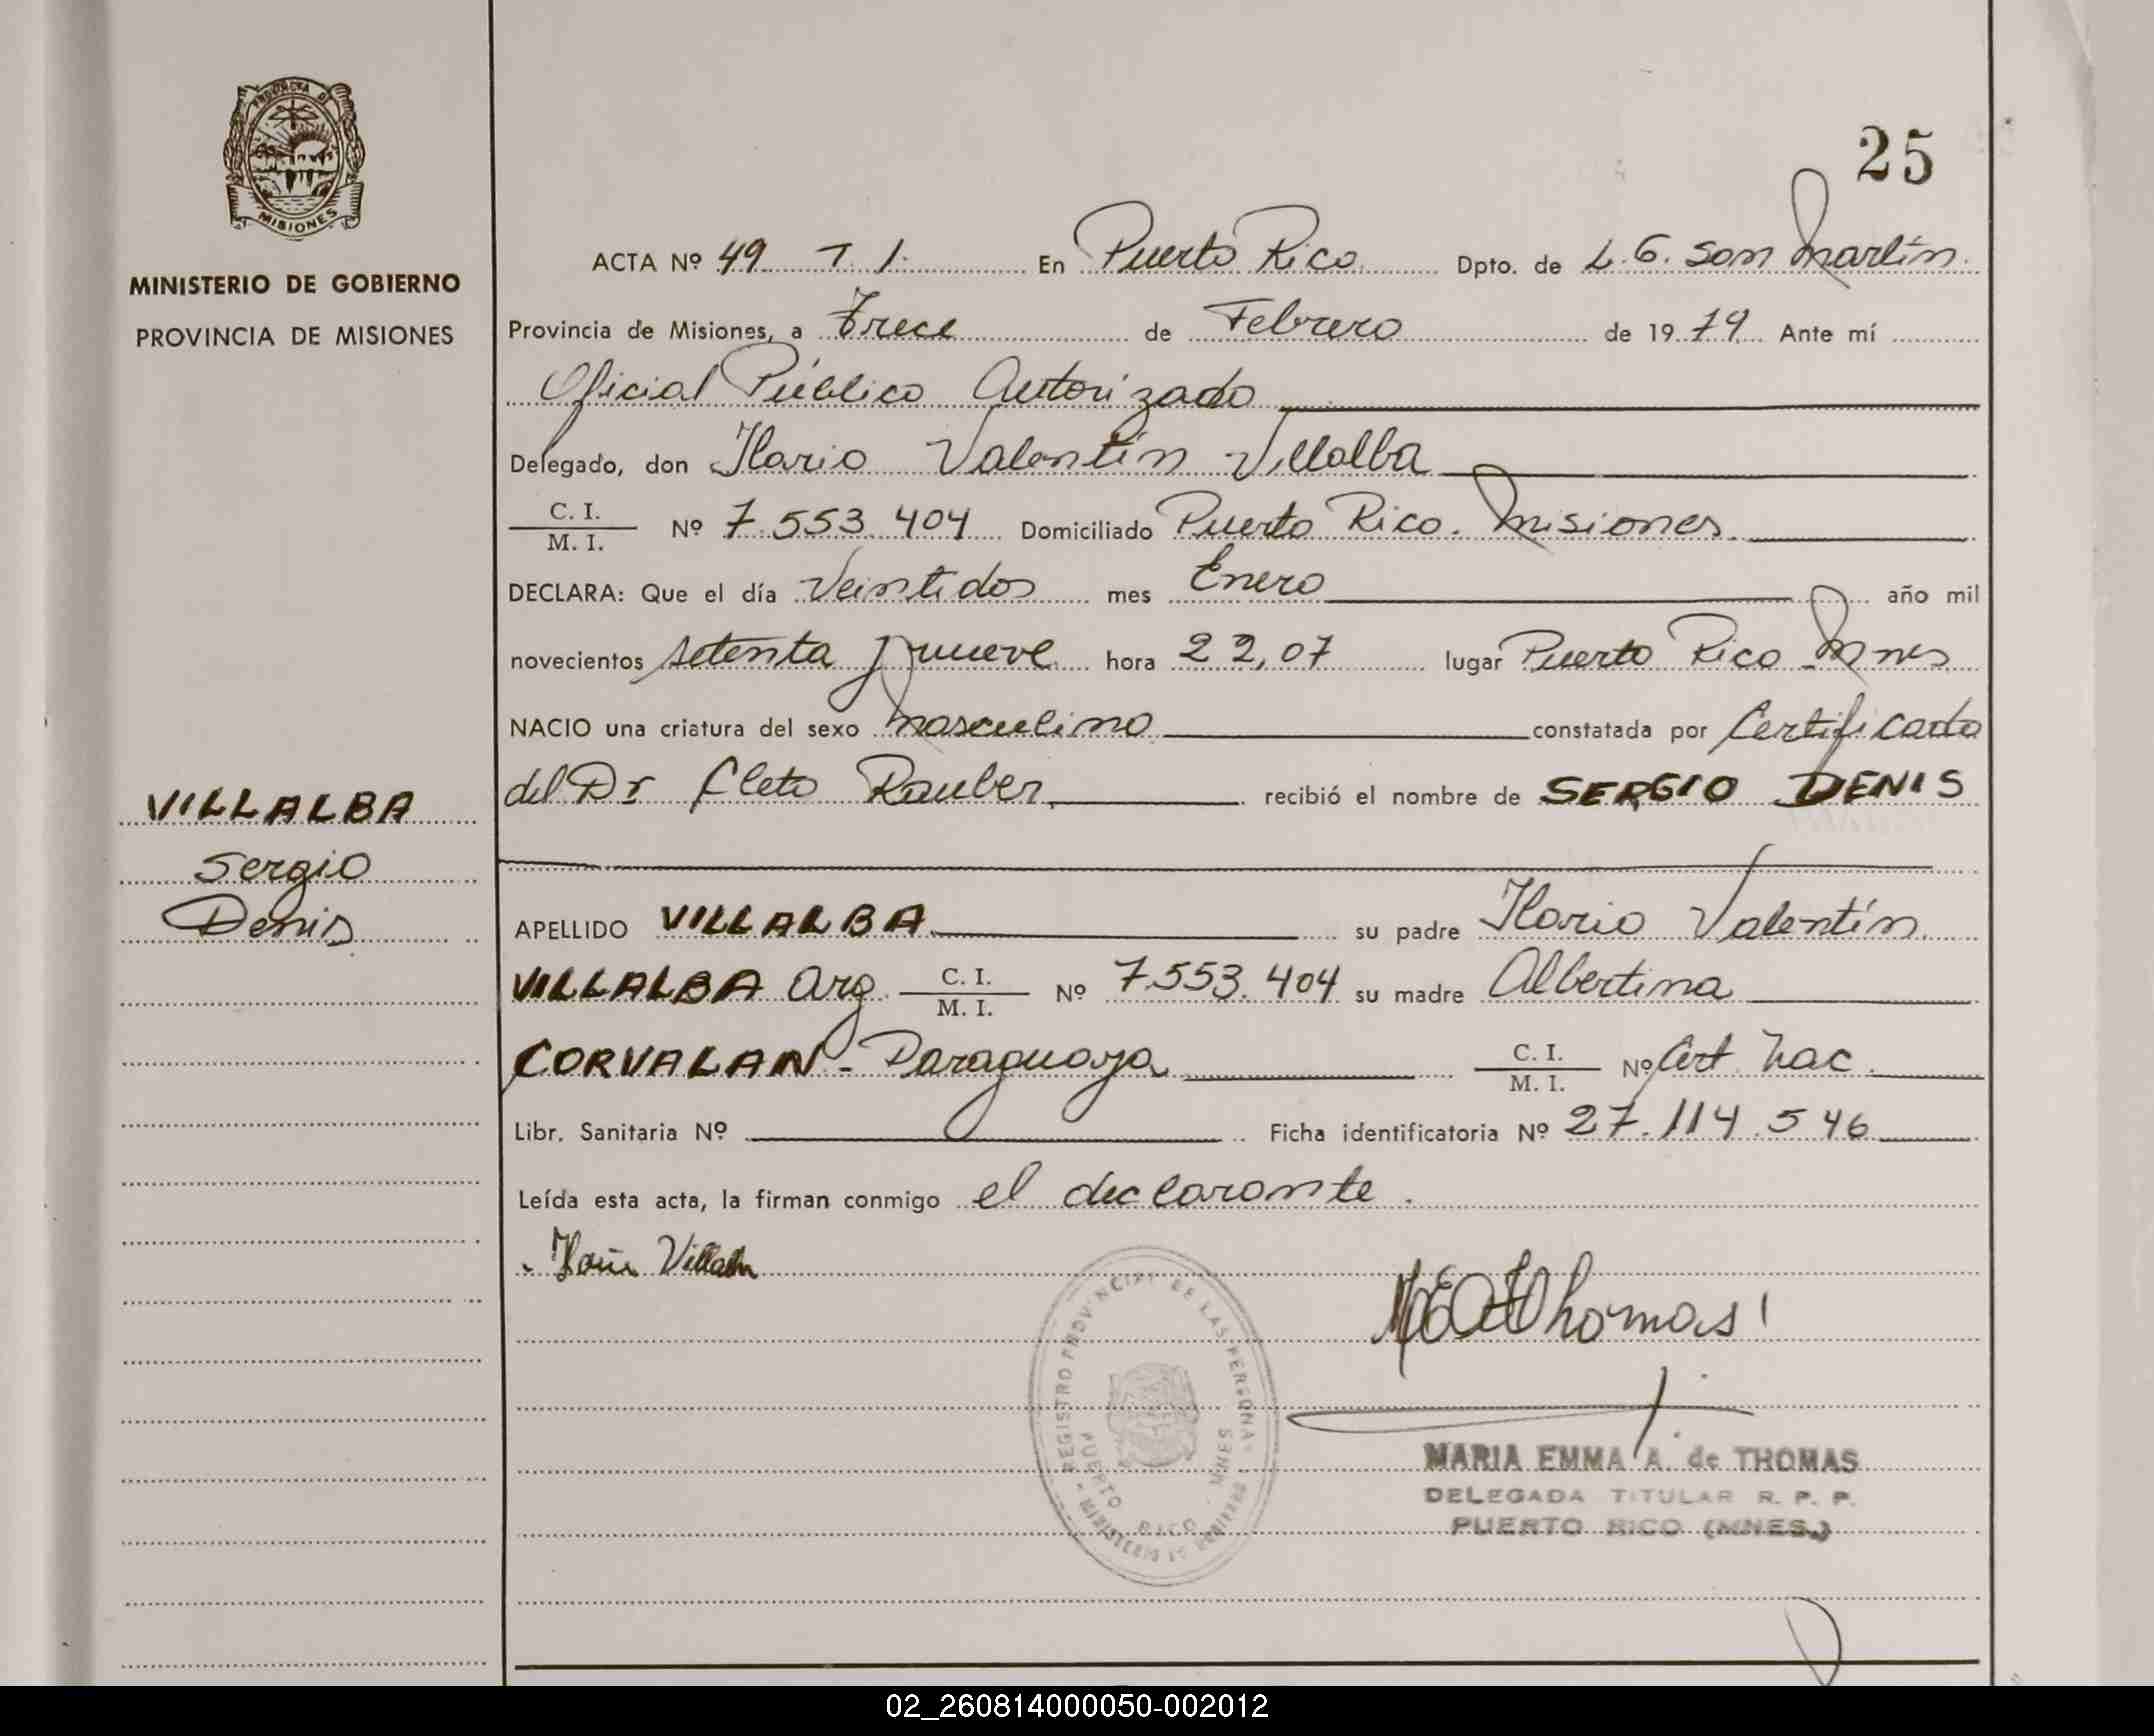 PROVINCIA DE
MISIONES
MINISTERIO DE GOBIERNO
PROVINCIA DE MISIONES
VILLALBA
Sergio
Denis
25
ACTA Nº 49 T 1. En Puerto Rico Dpto. de L. G. San Martín
Provincia de Misiones, a Trece de Febrero de 1979 Ante mí
Oficial Público Autorizado
Delegado, don Ilario Valentín Villalba
C. I.
M. I. Nº 7.553.404 Domiciliado Puerto Rico. Misiones
DECLARA: Que el día Veintidos mes Enero año mil
novecientos setenta y nueve hora 22,07 lugar Puerto Rico - Mnes
NACIO una criatura del sexo masculino constatada por Certificado
del Dr Cleto Rauber. recibió el nombre de SERGIO DENIS
APELLIDO VILLALBA su padre Ilario Valentín
VILLALBA Arg. C. I.
M. I. Nº 7.553.404 su madre Albertina
CORVALAN - Paraguaya C. I.
M. I. Nº Cert. Nac.
Libr. Sanitaria Nº Ficha identificatoria Nº 27.114.546
Leída esta acta, la firman conmigo el declarante.
Villalba
Thomas
REGISTRO PROVINCIAL DE LAS PERSONAS
PUERTO RICO - MNES
MINISTERIO DE GOBIERNO
MARIA EMMA A. de THOMAS
DELEGADA TITULAR R. P. P.
PUERTO RICO (MNES.)
02_260814000050-002012